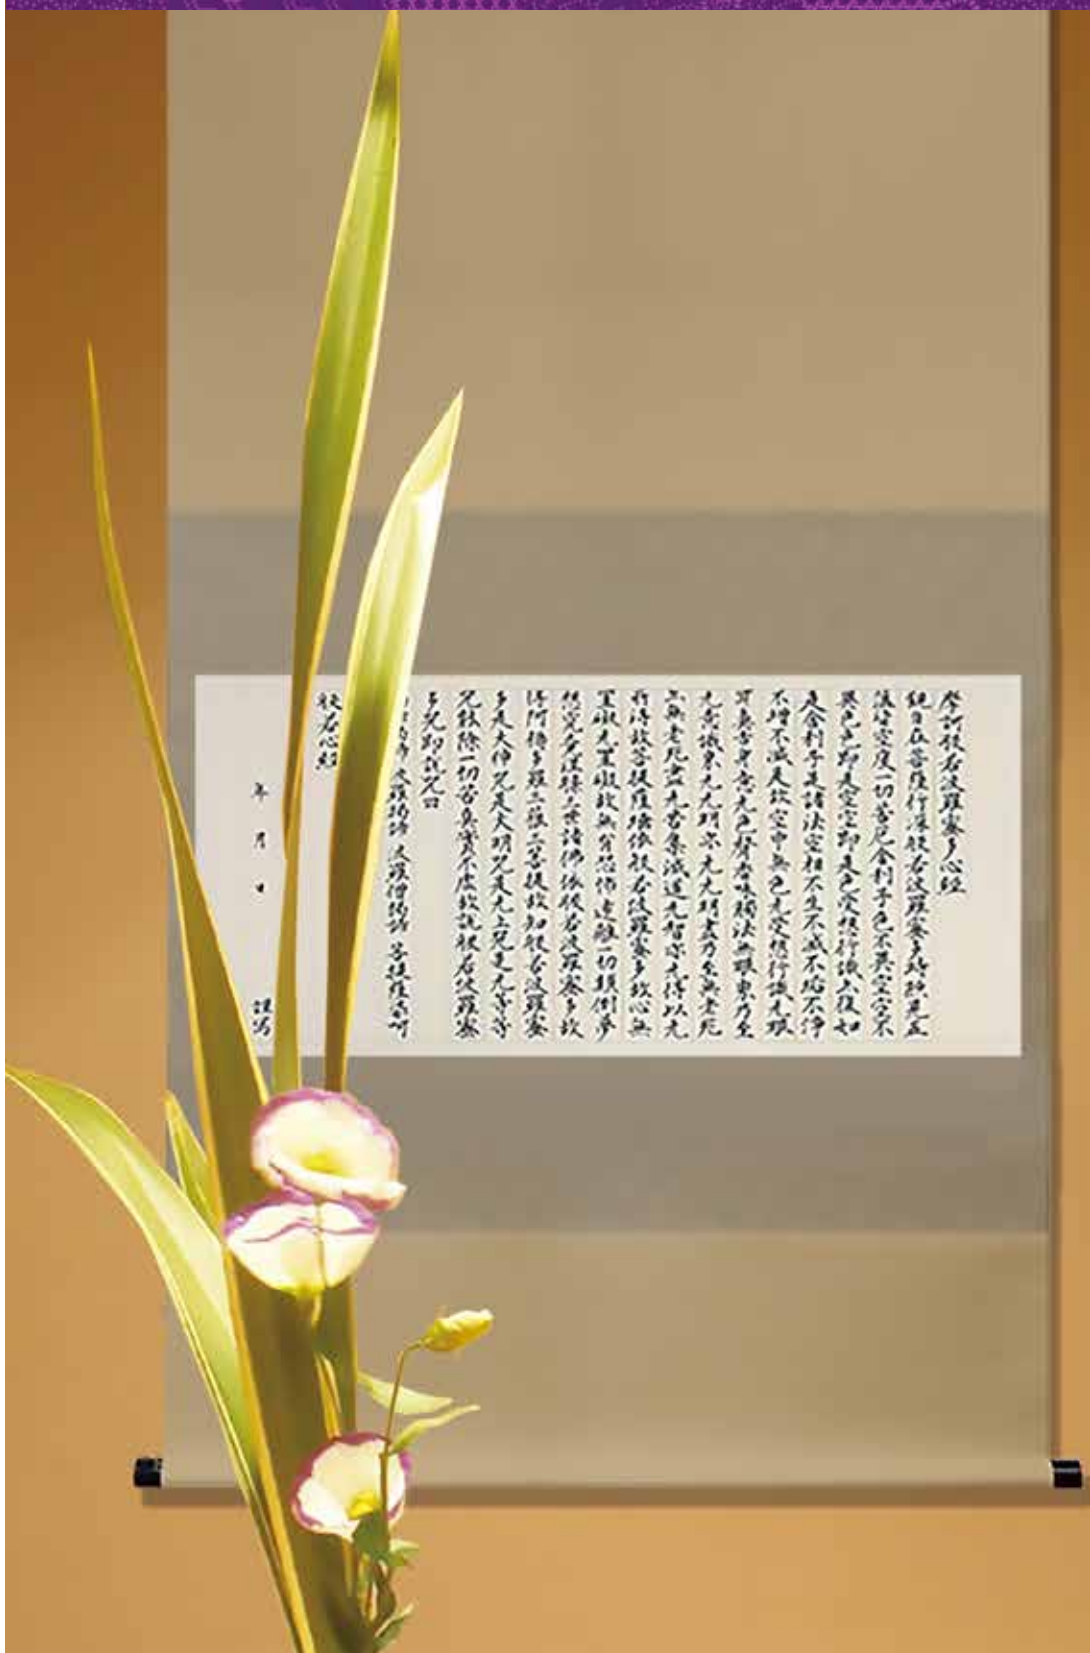 摩訶般若波羅蜜多心経
観自在菩薩行深般若波羅蜜多時照見五
蘊皆空度一切苦厄舎利子色不異空空不
異色色即是空空即是色受想行識亦復如
是舎利子是諸法空相不生不滅不垢不浄
不増不減是故空中無色无受想行識无眼
耳鼻舌身意无色聲香味觸法無眼界乃至
无意識界无无明亦无无明盡乃至無老死
亦無老死盡无苦集滅道无智亦无得以无
所得故菩提薩埵依般若波羅蜜多故心無
罣礙无罣礙故無有恐怖遠離一切顛倒夢
想究竟涅槃三世諸佛依般若波羅蜜多故
得阿耨多羅三藐三菩提故知般若波羅蜜
多是大神咒是大明咒是无上咒是无等等
咒能除一切苦真實不虚故説般若波羅蜜
多咒即説咒曰
諦 波羅羯諦 波羅僧羯諦 菩提薩婆訶
般若心経
年 月 日 謹写